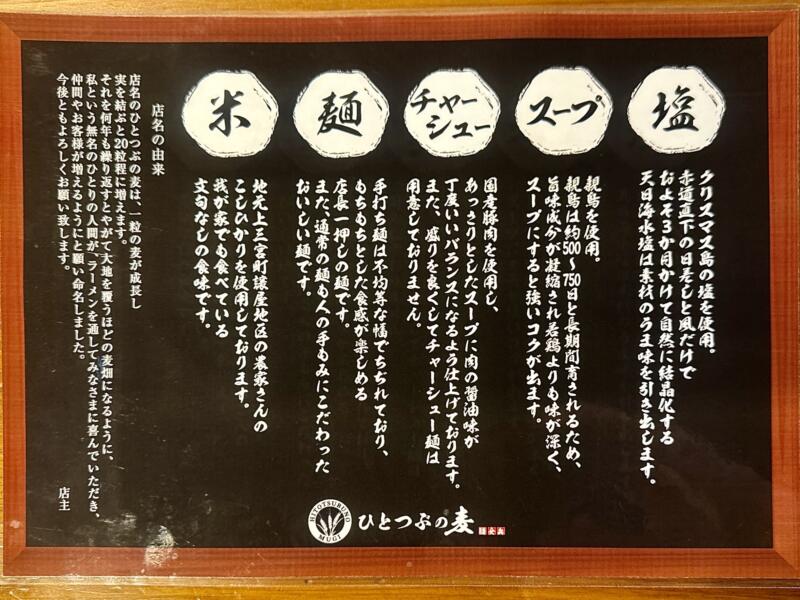 塩
クリスマス島の塩を使用。
赤道直下の日差しと風だけで
およそ3か月かけて自然に結晶化する
天日海水塩は素材のうま味を引き出します。
スープ
親鳥を使用。
親鳥は約500〜750日と長期間育されるため、
旨味成分が凝縮され若鶏よりも味が深く、
スープにすると強いコクが出ます。
チャー
シュー
国産豚肉を使用し、
あっさりとしたスープに肉の醤油味が
丁度いいバランスになるよう仕上げております。
また、盛りを良くしてチャーシュー麺は
用意しておりません。
麺
手打ち麺は不均等な幅でちぢれており、
もちもちとした食感が楽しめる
店長一押しの麺です。
また、通常の麺も人の手もみにこだわった
おいしい麺です。
米
地元上三宮町譲屋地区の農家さんの
こしひかりを使用しております。
我が家でも食べている
文句なしの食味です。
店名の由来
店名のひとつぶの麦は、一粒の麦が成長し
実を結ぶと20粒程に増えます。
それを何年も繰り返すとやがて大地を覆うほどの麦畑になるように、
私という無名のひとりの人間が、ラーメンを通してみなさまに喜んでいただき、
仲間やお客様が増えるようにと願い命名しました。
今後ともよろしくお願い致します。
店主
HITOTSUBUNO
MUGI
ひとつぶの麦